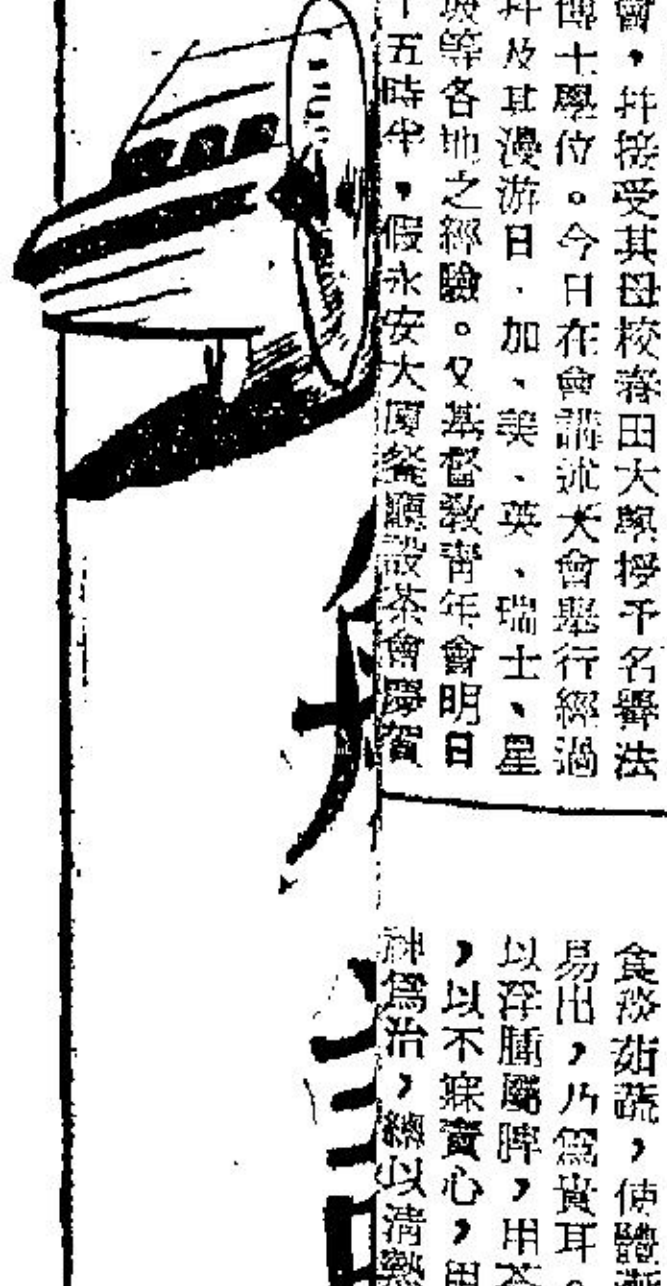 會，并接受其母校春田大學授予名譽法
博士學位。今日在會講述大會舉行經過
并及其漫游日、加、美、英、瑞士、星
坡等各地之經驗。又基督教青年會明日
十五時半，假永安大廈餐廳設茶會慶賀
食淡茹蔬，使體
易出，乃為貴耳。
以浮腫屬脾，用
，以不寐責心，用
神為治，總以清熱